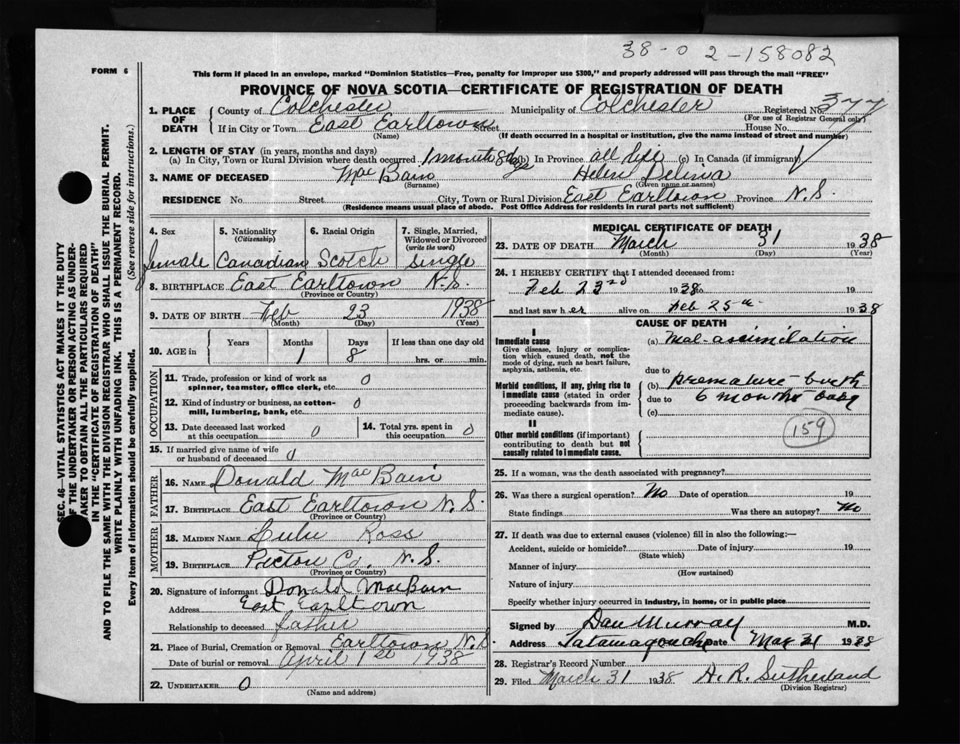 38-0 2-158082
FORM 6
This form if placed in an envelope, marked "Dominion Statistics—Free, penalty for improper use $300," and properly addressed will pass through the mail "FREE"
PROVINCE OF NOVA SCOTIA—CERTIFICATE OF REGISTRATION OF DEATH
1. PLACE OF DEATH County of Colchester Municipality of Colchester Registered No. 377
(For use of Registrar General only)
If in City or Town East Earltown Street House No.
(Name) (If death occurred in a hospital or institution, give the name instead of street and number)
2. LENGTH OF STAY (in years, months and days)
(a) In City, Town or Rural Division where death occurred 1 month 8 days (b) In Province all life (c) In Canada (if immigrant)
3. NAME OF DECEASED MacBain Helen
(Surname) (Given name or names)
RESIDENCE No. Street City, Town or Rural Division East Earltown Province N.S.
(Residence means usual place of abode. Post Office Address for residents in rural parts not sufficient)
4. Sex 5. Nationality (Citizenship) 6. Racial Origin 7. Single, Married, Widowed or Divorced (write the word)
female Canadian Scotch single
8. BIRTHPLACE East Earltown N.S.
(Province or Country)
9. DATE OF BIRTH Feb 23 1938
(Month) (Day) (Year)
10. AGE in Years Months Days If less than one day old
1 8 hrs. or min.
OCCUPATION
11. Trade, profession or kind of work as spinner, teamster, office clerk, etc. 0
12. Kind of industry or business, as cotton-mill, lumbering, bank, etc. 0
13. Date deceased last worked at this occupation 0 14. Total yrs. spent in this occupation 0
15. If married give name of wife or husband of deceased 0
FATHER
16. NAME Donald MacBain
17. BIRTHPLACE East Earltown N.S.
(Province or Country)
MOTHER
18. MAIDEN NAME Ross
19. BIRTHPLACE Pictou Co. N.S.
(Province or Country)
20. Signature of informant Donald MacBain
Address East Earltown
Relationship to deceased father
21. Place of Burial, Cremation or Removal Earltown N.S.
Date of burial or removal April 1st 1938
22. UNDERTAKER 0
(Name and address)
MEDICAL CERTIFICATE OF DEATH
23. DATE OF DEATH March 31 1938
(Month) (Day) (Year)
24. I HEREBY CERTIFY that I attended deceased from:
Feb 23rd 1938 to
and last saw her alive on Feb 25th 1938
CAUSE OF DEATH
I
Immediate cause
Give disease, injury or complication which caused death, not the mode of dying, such as heart failure, asphyxia, asthenia, etc.
(a) Mal-assimilation
due to
Morbid conditions, if any, giving rise to immediate cause (stated in order proceeding backwards from immediate cause).
(b) premature birth
due to 6 months baby
(c)
II
Other morbid conditions (if important) contributing to death but not causally related to immediate cause.
159
25. If a woman, was the death associated with pregnancy?
26. Was there a surgical operation? No Date of operation 19
State findings Was there an autopsy? No
27. If death was due to external causes (violence) fill in also the following:—
Accident, suicide or homicide? Date of injury 19
(State which)
Manner of injury
(How sustained)
Nature of injury
Specify whether injury occurred in industry, in home, or in public place
Signed by Dan Murray M.D.
Address Tatamagouche Date Mar 31 1938
28. Registrar's Record Number
29. Filed March 31 1938 H. R. Sutherland
(Division Registrar)
SEC. 46—VITAL STATISTICS ACT MAKES IT THE DUTY
OF THE UNDERTAKER OR PERSON ACTING AS UNDER-
TAKER TO OBTAIN ALL THE PARTICULARS REQUIRED
IN THE "CERTIFICATE OF REGISTRATION OF DEATH"
AND TO FILE THE SAME WITH THE DIVISION REGISTRAR WHO SHALL ISSUE THE BURIAL PERMIT.
WRITE PLAINLY WITH UNFADING INK. THIS IS A PERMANENT RECORD.
Every item of information should be carefully supplied. (See reverse side for instructions.)